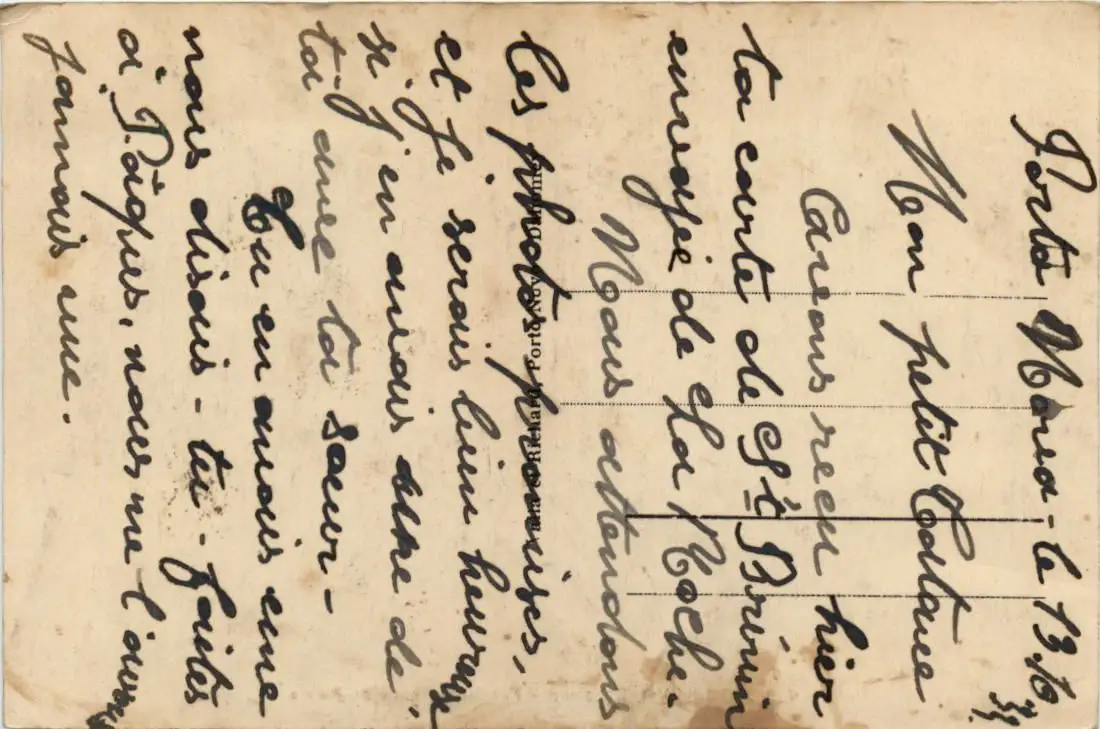 Porto Novo - le 13.10
Mon petit
reçu hier
ta carte de St Brévin
envoyée de La Roche.
Nous attendons
les photos promises,
et je serais bien heureuse
si j'en avais une de
toi avec ta soeur -
Tu en avais une
nous disais-tu - faites
à Pâques, nous ne l'avons
jamais vue.
Richard, Porto-Novo, Dahomey